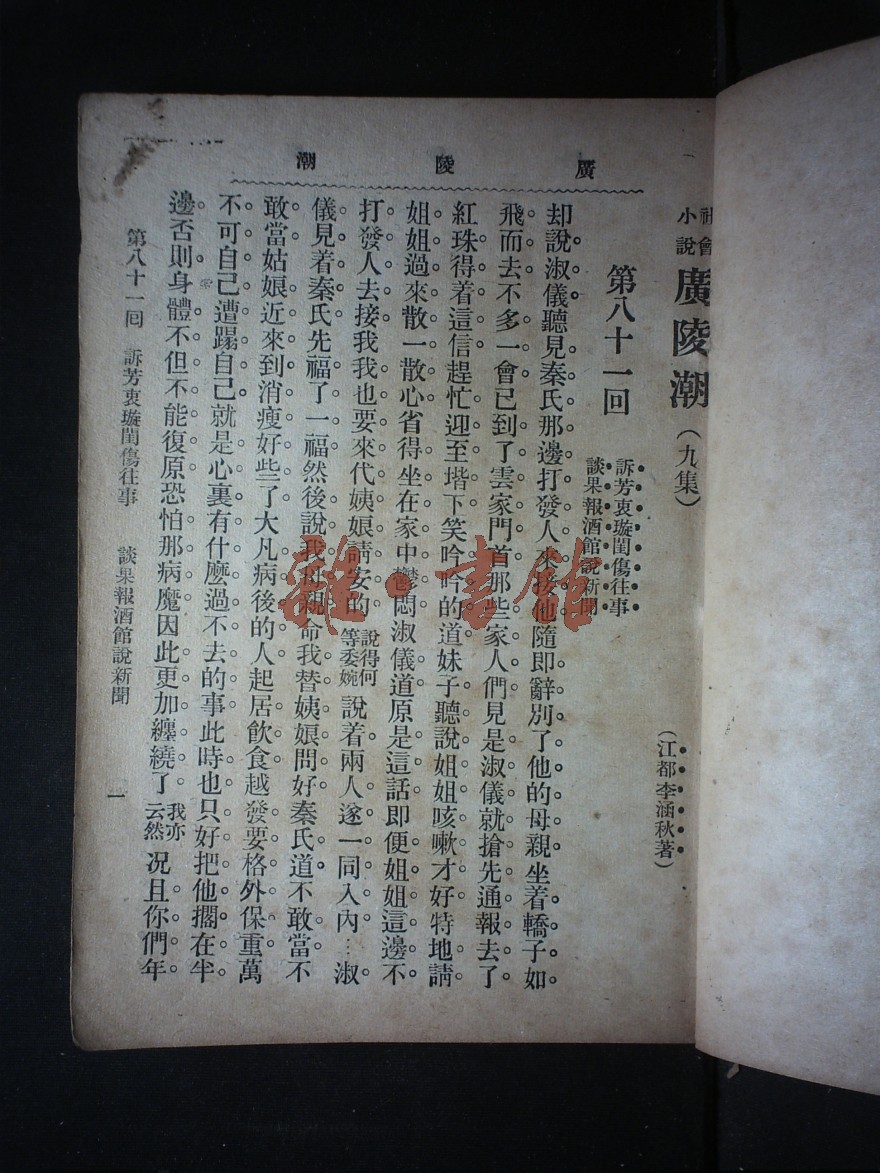 廣陵潮
社會小說 廣陵潮（九集）
（江都李涵秋著）
第八十一回
訴芳衷璇閨傷往事
談果報酒館說新聞
却說淑儀聽見秦氏那邊打發人來接他隨即辭別了他的母親坐着轎子如
飛而去不多一會已到了雲家門首那些家人們見是淑儀就搶先通報去了
紅珠得着這信趕忙迎至堦下笑吟吟的道妹子聽說姐姐咳嗽才好特地請
姐姐過來散一散心省得坐在家中鬱悶淑儀道原是這話即便姐姐這邊不
打發人去接我我也要來代姨娘請安的說得何等委婉說着兩人遂一同入內…淑
儀見着秦氏先福了一福然後說我母親命我替姨娘問好秦氏道不敢當不
敢當姑娘近來到消瘦好些了大凡病後的人起居飲食越發要格外保重萬
不可自己遭蹋自己就是心裏有什麼過不去的事此時也只好把他擱在半
邊否則身體不但不能復原恐怕那病魔因此更加纏繞了我亦云然况且你們年
第八十一回 訴芳衷璇閨傷往事 談果報酒館說新聞 一